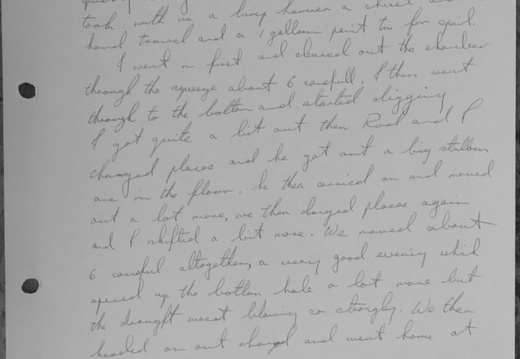 took with us a lump hammer a chisel and
hand trowel and a 1 gallon paint tin for spoil.
I went in first and cleared out the chamber
through the squeeze about 6 canfull. I then went
through to the bottom and started digging
I got quite a bit out then Rod and I
changed places and he got out a big stubborn
one in the floor. he then carried on and moved
out a lot more, we then changed places again
and I shifted a bit more. We moved about
6 canful altogether, a very good evening which
opened up the bottom hole a lot more but
the draught wasnt blowing so strongly. We then
headed on out changed and went home at